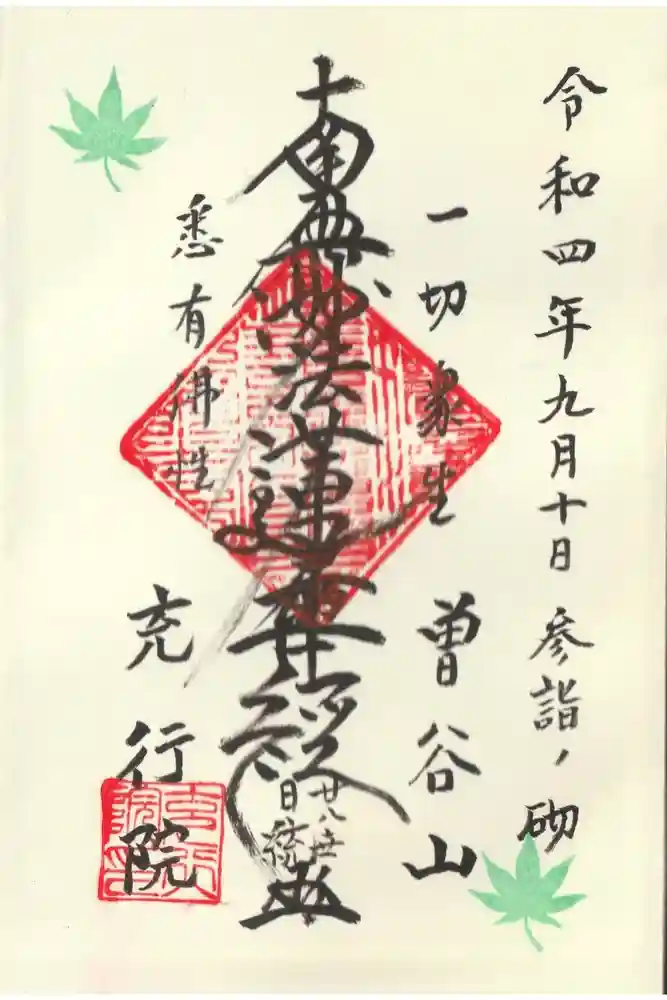 令和四年九月十日 参詣ノ砌
一切衆生
曽谷山
南無妙法蓮華経
廿八世
日
悉有佛性
充行院